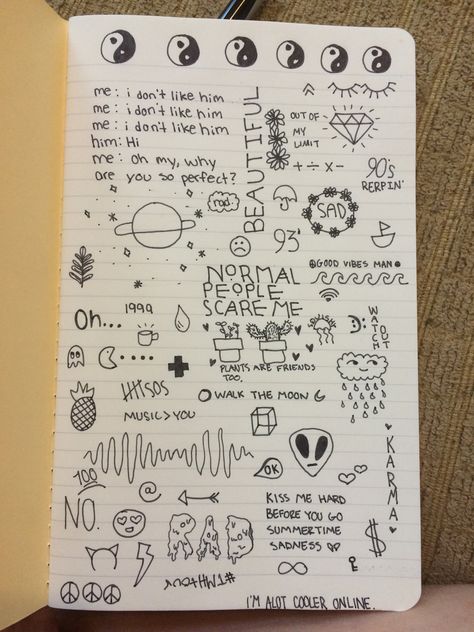 me: i don't like him
me: i don't like him
me: i don't like him
him: Hi
me: oh my, why
are you so perfect?
BEAUTIFUL
OUT OF
MY
LIMIT
+ ÷ x -
90's
RERPIN'
rad
SAD
93'
GOOD VIBES MAN
NORMAL
PEOPLE
SCARE ME
Oh...
1994
WATCH
OUT
PLANTS ARE FRIENDS
TOO.
SOS
WALK THE MOON
MUSIC > YOU
OK
100
KARMA
@
NO.
KISS ME HARD
BEFORE YOU GO
SUMMERTIME
SADNESS
$
#TMHT
I'M ALOT COOLER ONLINE.